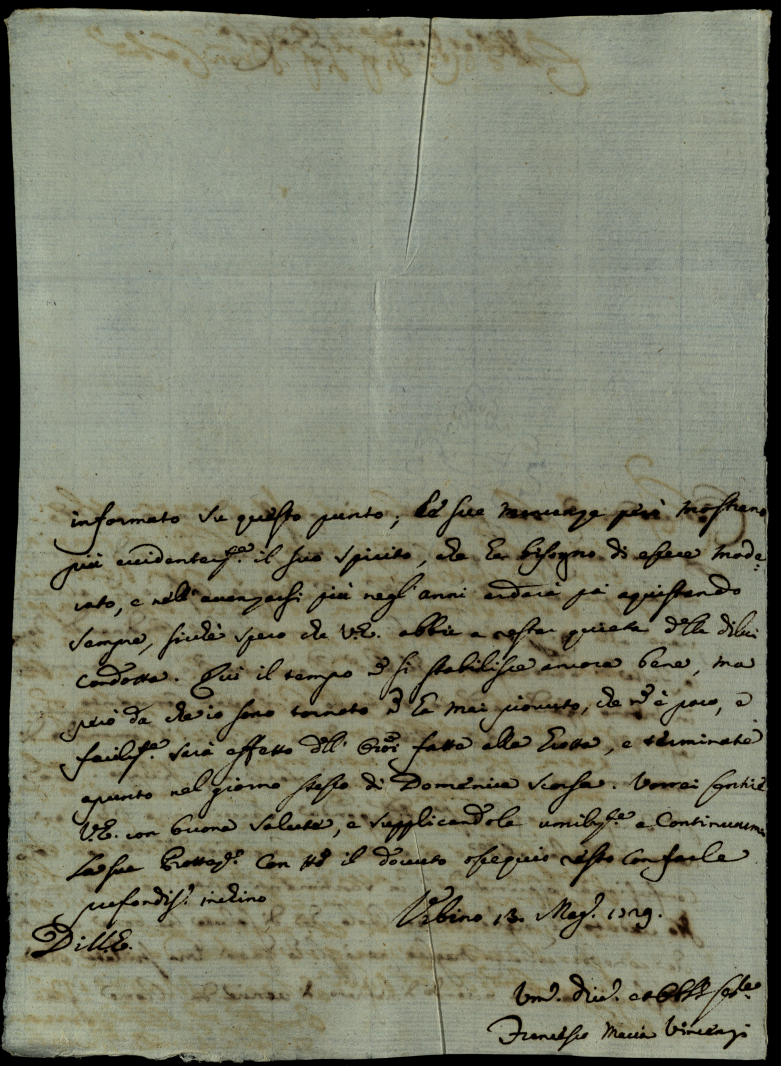 informato su questo punto; le sue maniere però mostrano
più evidentem.te il suo spirito, che ha bisogno di essere mode:
rato, e nell'avanzarsi più negl'anni andarà poi aquistando
sempre, sicché spero che V.E. abbia a restar quieta della di lui
condotta. Qui il tempo nõ si stabilisce ancora bene, ma
però da che io sono tornato nõ ha mai piovuto, che nõ è poco, e
facilm.te sarà effetto dell' Oraõi fatte alla Grotta, e terminate
apunto nel giorno stesso di Domenica scorsa. Vorrei sentire
V.E. con buona salute, e supplicandola umilm.te a continuarmi
la sua Prottez.e con tt.o il dovuto ossequio resto con farle
profondiss.o inchino
Urbino 13. Mag.o 1729.
Di V.E.
Um.o Div.o et Obb.o Ser.re
Francesco Maria Vincenzi